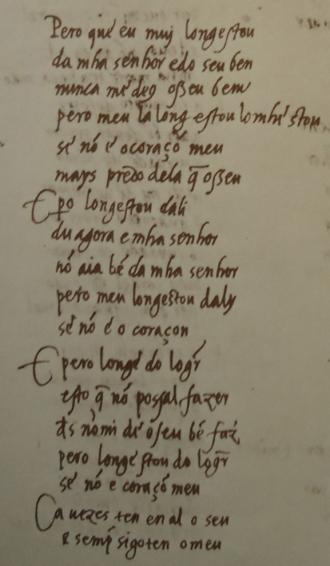 Pero que eu muj longestou
da mha senhor edo seu ben
nunca mē deꝯ osseu bem
pero meu la long estou
se nō e ocoraçō meu
mays p̄to dela q̄ osseu
E po longestou dali
du agora e mha senhor
nō aia bē da mha senhor
pero meu longestou daly
se nō é o coraçon
E pero longe do logr̄
esto q̄ nō possal fazer
ds nōmi dē ōseu bē faz̄
pero longe stou do logr̄
se nō e coraçō meu
Ca uezes ten en al o seu
& semp̄ sigo ten o meu